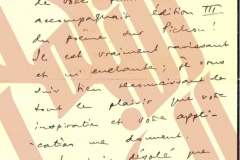 de votre
accompagnait édition III
du poème du Pichon !
Il est vraiment ravissant
et m'enchante ; je vous
suis bien reconnaissant de
tout le plaisir que votre
inspiration et votre appli-
cation me donnent.
désolé que